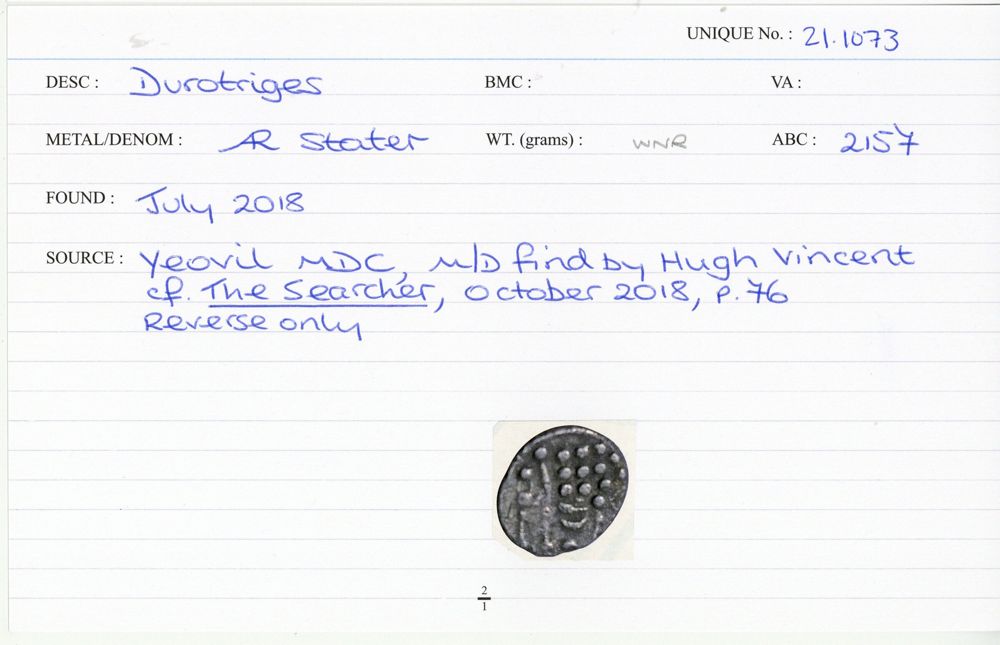 UNIQUE No. : 21.1073
DESC : Durotriges BMC : VA :
METAL/DENOM : AR Stater WT. (grams) : WNR ABC : 2157
FOUND : July 2018
SOURCE : Yeovil MDC, M/D find by Hugh Vincent
cf. The Searcher, October 2018, p. 76
Reverse only
2
1